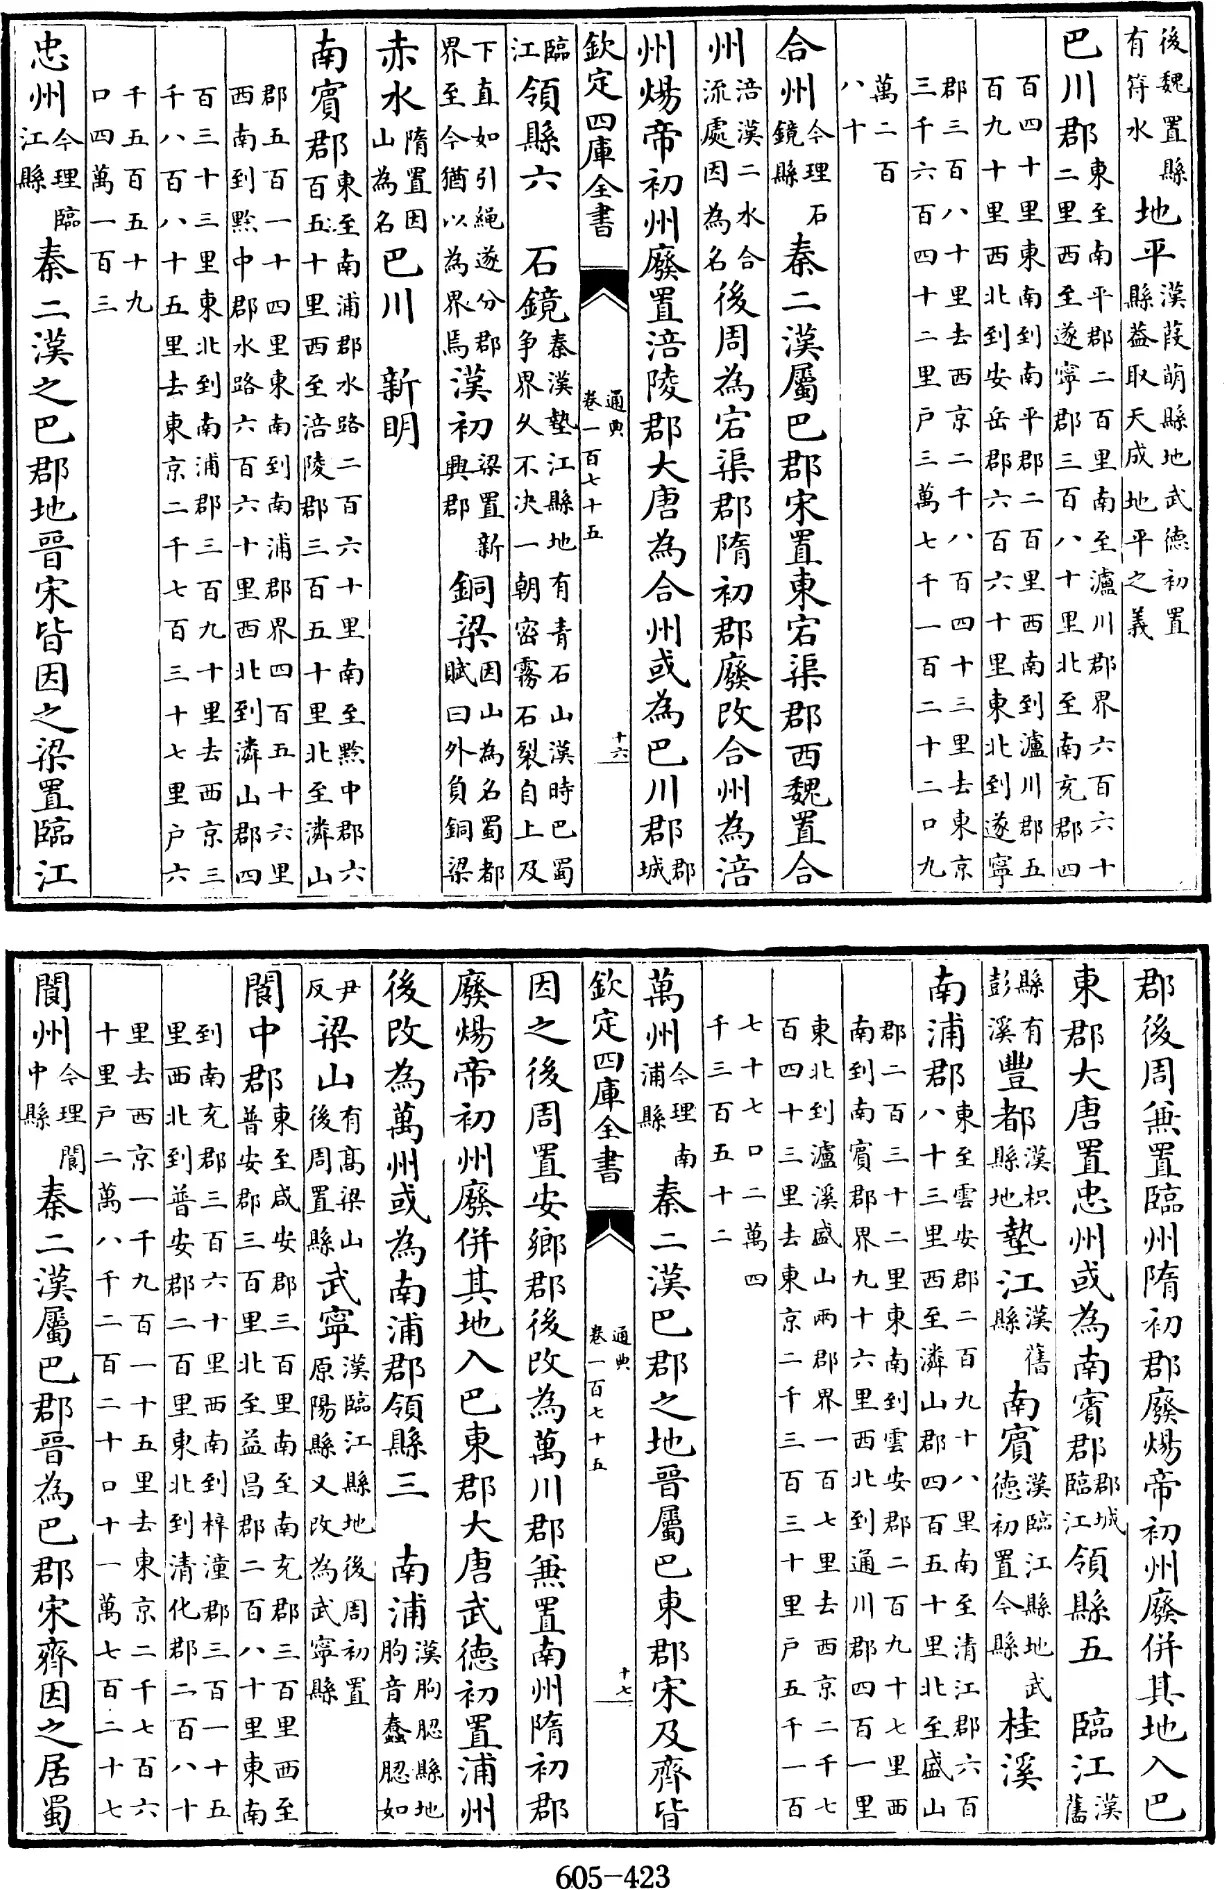 後魏置縣有符水地平漢葭萌縣地武德初置縣益取天成地平之義
巴川郡東至南平郡二百里南至瀘川郡界六百六十二里西至遂寧郡三百八十里北至南充郡四
百四十里東南到南平郡二百里西南到瀘川郡五百九十里西北到安岳郡六百六十里東北到遂寧
郡三百八十里去西京二千八百四十三里去東京三千六百四十二里戸三萬七千一百二十二口九
萬二百八十
合州今理石鏡縣秦二漢屬巴郡宋置東宕渠郡西魏置合
州涪漢二水合流處因為名後周為宕渠郡隋初郡廢改合州為涪
州煬帝初州廢置涪陵郡大唐為合州或為巴川郡郡城
欽定四庫全書 通典 卷一百七十五 十六
臨江領縣六 石鏡秦漢墊江縣地有青石山漢時巴蜀争界久不决一朝密霧石裂自上及
下直如引繩遂分郡界至今猶以為界焉漢初梁置新興郡銅梁因山為名蜀都賦曰外負銅梁
赤水隋置因山為名巴川 新明
南賓郡東至南浦郡水路二百六十里南至黔中郡六百五十里西至涪陵郡三百五十里北至潾山
郡五百一十四里東南到南浦郡界四百五十六里西南到黔中郡水路六百六十里西北到潾山郡四
百三十三里東北到南浦郡三百九十里去西京三千八百八十五里去東京二千七百三十七里戸六
千五百五十九口四萬一百三
忠州今理臨江縣秦二漢之巴郡地晉宋皆因之梁置臨江
郡後周兼置臨州隋初郡廢煬帝初州廢併其地入巴
東郡大唐置忠州或為南賓郡郡城臨江領縣五 臨江漢舊
縣有彭溪豐都漢枳縣地墊江漢舊縣南賓漢臨江縣地武德初置今縣桂溪
南浦郡東至雲安郡二百九十八里南至清江郡六百八十三里西至潾山郡四百五十里北至盛山
郡二百三十二里東南到雲安郡二百九十七里西南到南賓郡界九十六里西北到通川郡四百一里
東北到瀘溪盛山兩郡界一百七里去西京二千七百四十三里去東京二千三百三十里戸五千一百
七十七口二萬四千三百五十二
萬州今理南浦縣秦二漢巴郡之地晉屬巴東郡宋及齊皆
欽定四庫全書 通典 卷一百七十五 十七
因之後周置安鄉郡後改為萬川郡兼置南州隋初郡
廢煬帝初州廢併其地入巴東郡大唐武德初置浦州
後改為萬州或為南浦郡領縣三 南浦漢朐䏰縣地朐音蠢䏰如
尹反梁山有髙梁山後周置縣武寧漢臨江縣地後周初置原陽縣又改為武寧縣
閬中郡東至咸安郡三百里南至南充郡三百里西至普安郡三百里北至益昌郡二百八十里東南
到南充郡三百六十里西南到梓潼郡三百一十五里西北到普安郡二百里東北到清化郡二百八十
里去西京一千九百一十五里去東京二千七百六十里戸二萬八千二百二十口十一萬七百二十七
閬州今理閬中縣秦二漢屬巴郡晉為巴郡宋齊因之居蜀
605-423